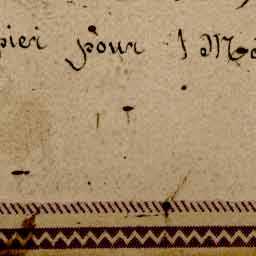 pier pour 1 Mo